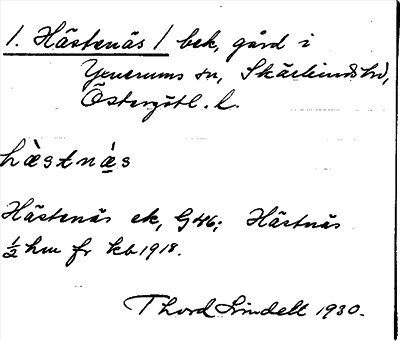 1. Hästenäs / bek, gård i
Yxnerums sn, Skärkinds hd,
Östergötl. l.
hæ̀stnæ̀s
Hästenäs ek, G46; Hästnäs
½ hm fr kb 1918.
Thord Lindell 1930.